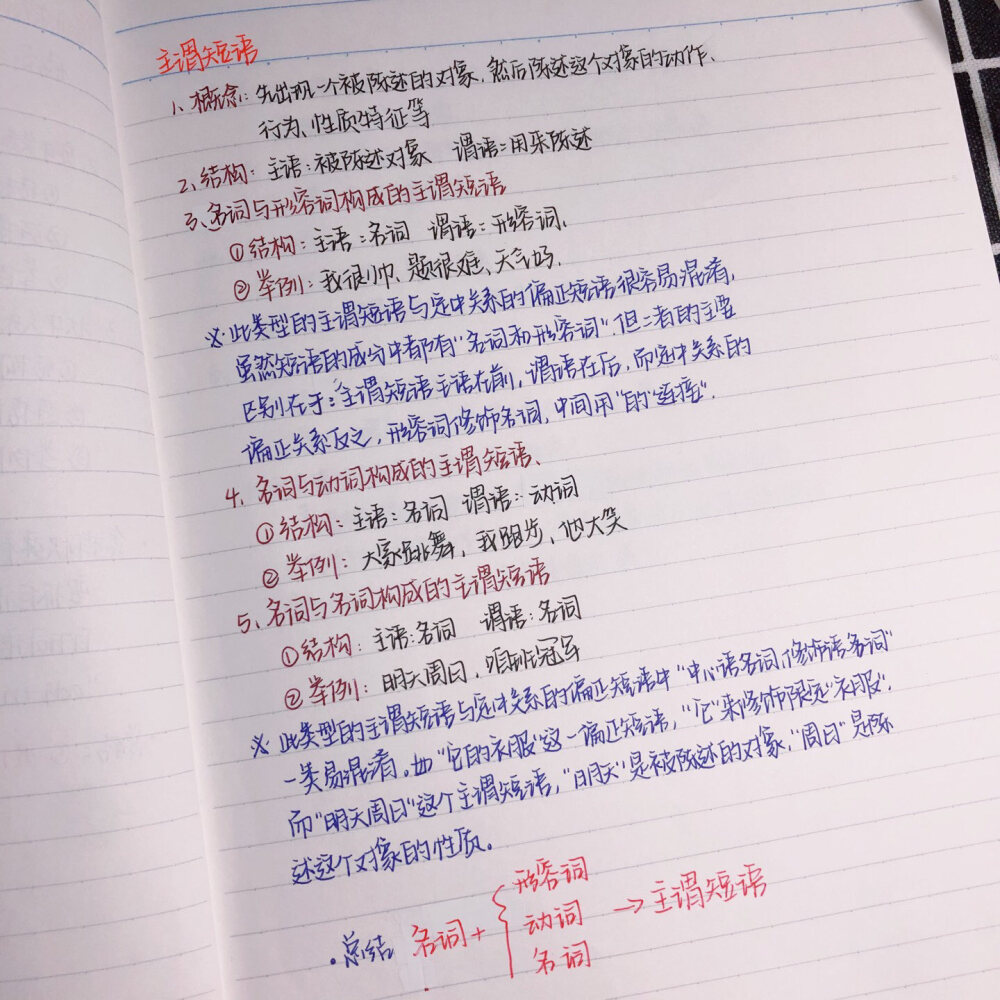 主谓短语
1、概念:先出现一个被陈述的对象,然后陈述这个对象的动作、
行为、性质特征等
2、结构:主语:被陈述对象 谓语:用来陈述
3、名词与形容词构成的主谓短语
①结构:主语:名词 谓语:形容词、
②举例:我很帅、题很难、天气好、
※此类型的主谓短语与定中关系的偏正短语很容易混淆,
虽然短语的成分中都有“名词和形容词”.但二者的主要
区别在于:主谓短语主语在前,谓语在后,而定中关系的
偏正关系反之,形容词修饰名词,中间用“的”连接”.
4、名词与动词构成的主谓短语、
①结构:主语:名词 谓语:动词
②举例:大家跳舞,我跑步、他大笑
5、名词与名词构成的主谓短语
①结构:主语:名词 谓语:名词
②举例:明天周日,咱班冠军
※此类型的主谓短语与定中关系的偏正短语中“中心语名词,修饰语名词”
一类易混淆。如“它的衣服”这一偏正短语,“它”来修饰限定“衣服”.
而“明天周日”这个主谓短语,“明天”是被陈述的对象,“周日”是陈
述这个对象的性质。
形容词
.总结 名词+ 动词 →主谓短语
名词